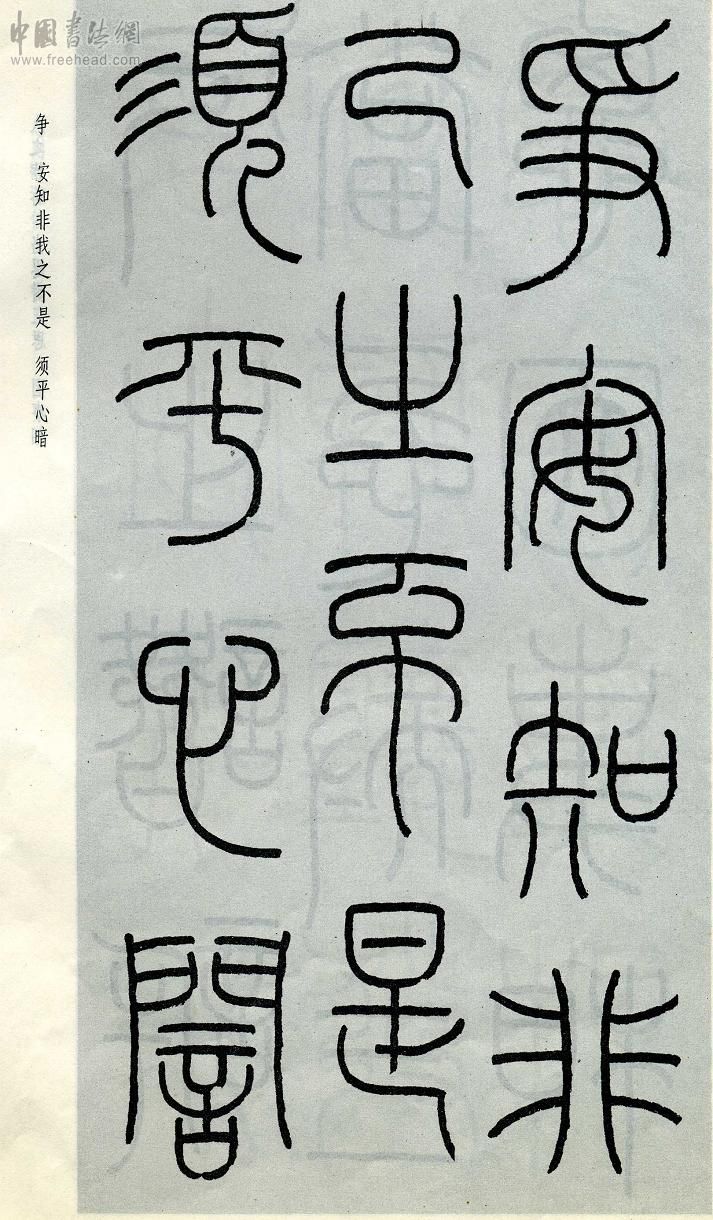 中國書法網
www.freehead.com
爭安知非
己之不是
須平心闇
争 安知非我之不是 须平心暗